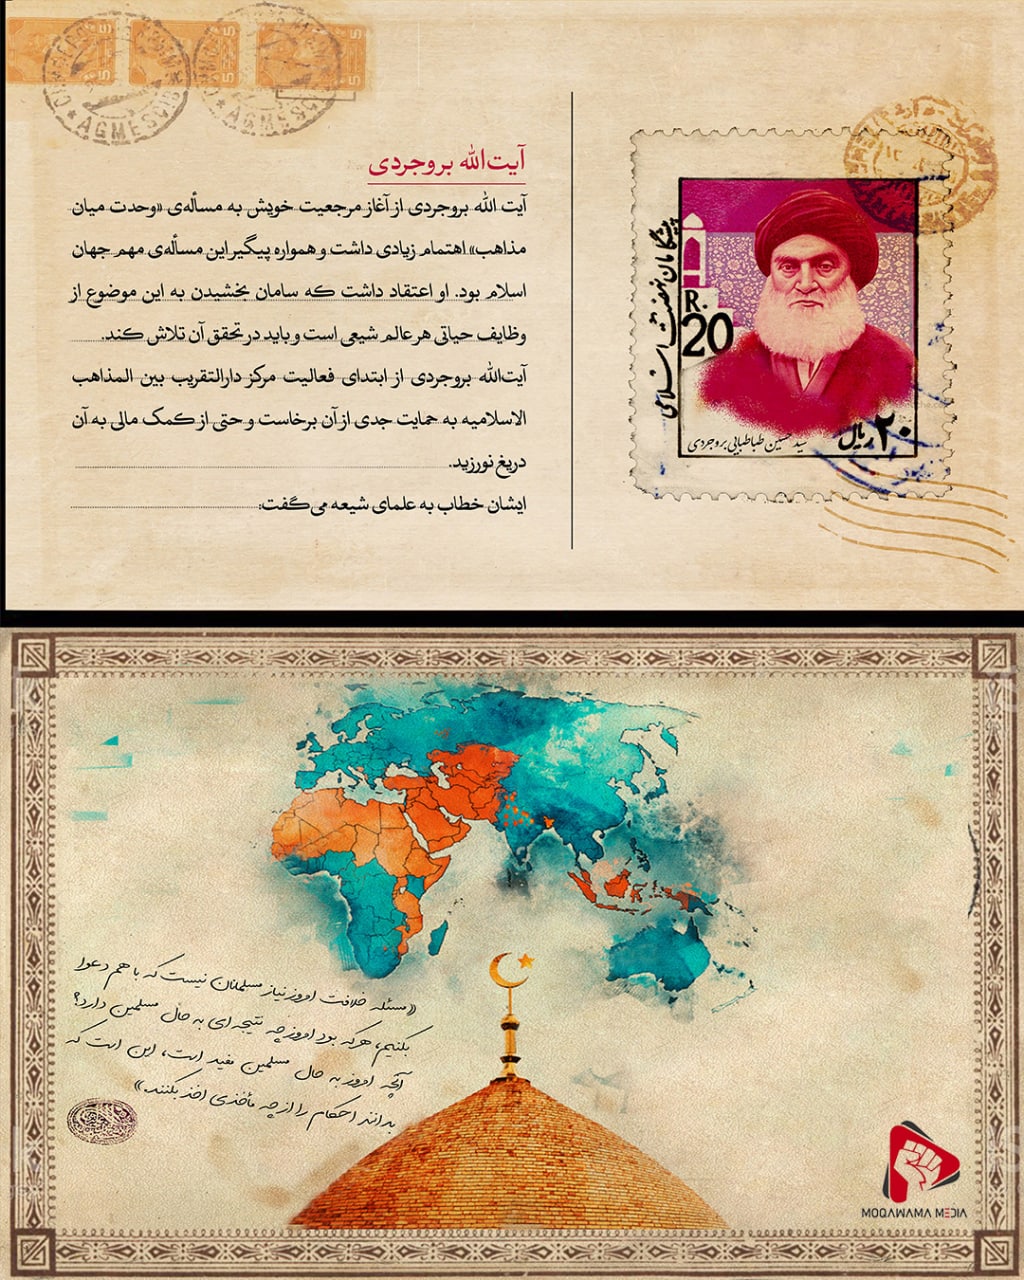 آیت‌الله بروجردی
آیت الله بروجردی از آغاز مرجعیت خویش به مسأله‌ی «وحدت میان
مذاهب» اهتمام زیادی داشت و همواره پیگیر این مسأله‌ی مهم جهان
اسلام بود. او اعتقاد داشت که سامان بخشیدن به این موضوع از
وظایف حیاتی هر عالم شیعی است و باید در تحقق آن تلاش کند.
آیت‌الله بروجردی از ابتدای فعالیت مرکز دارالتقریب بین المذاهب
الاسلامیه به حمایت جدی از آن برخاست و حتی از کمک مالی به آن
دریغ نورزید.
ایشان خطاب به علمای شیعه می‌گفت:
پیشگامان نهضت اسلامی
R.
20
۲۰ ریال
سید حسین طباطبایی بروجردی
AGMESSCI
«مسئله خلافت امروز نیاز مسلمانان نیست که با هم دعوا
بکنیم، هرکه بود امروز چه نتیجه‌ای به حال مسلمین دارد؟
آنچه امروز به حال مسلمین مفید است، این است که
بدانند احکام را از چه مأخذی اخذ بکنند.»
MOQAWAMA MEDIA